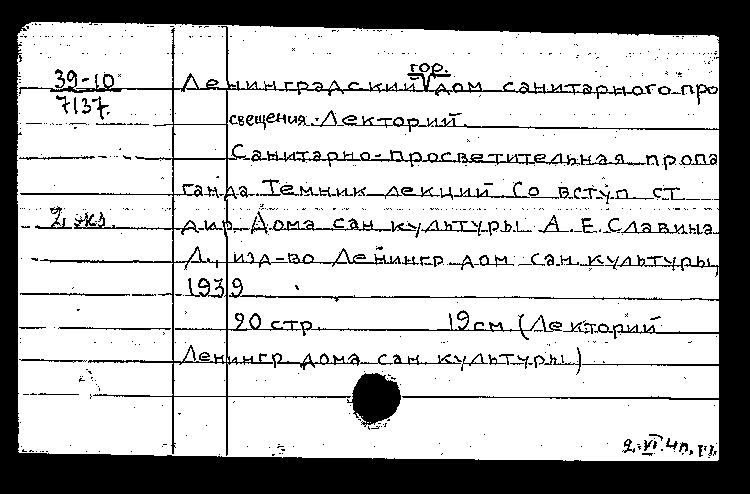 гор.
39-10 Ленинградский V дом санитарного про
7137. свещения. Лекторий.
Санитарно-просветительная пропа
ганда Темник лекций Со вступ ст
2 экз. дир Дома сан культуры А. Е. Славина
Л., изд-во Ленингр дом сан. культуры,
1939
20 стр. 19 см. (Лекторий
Ленингр дома сан. культуры)
2.VI.4